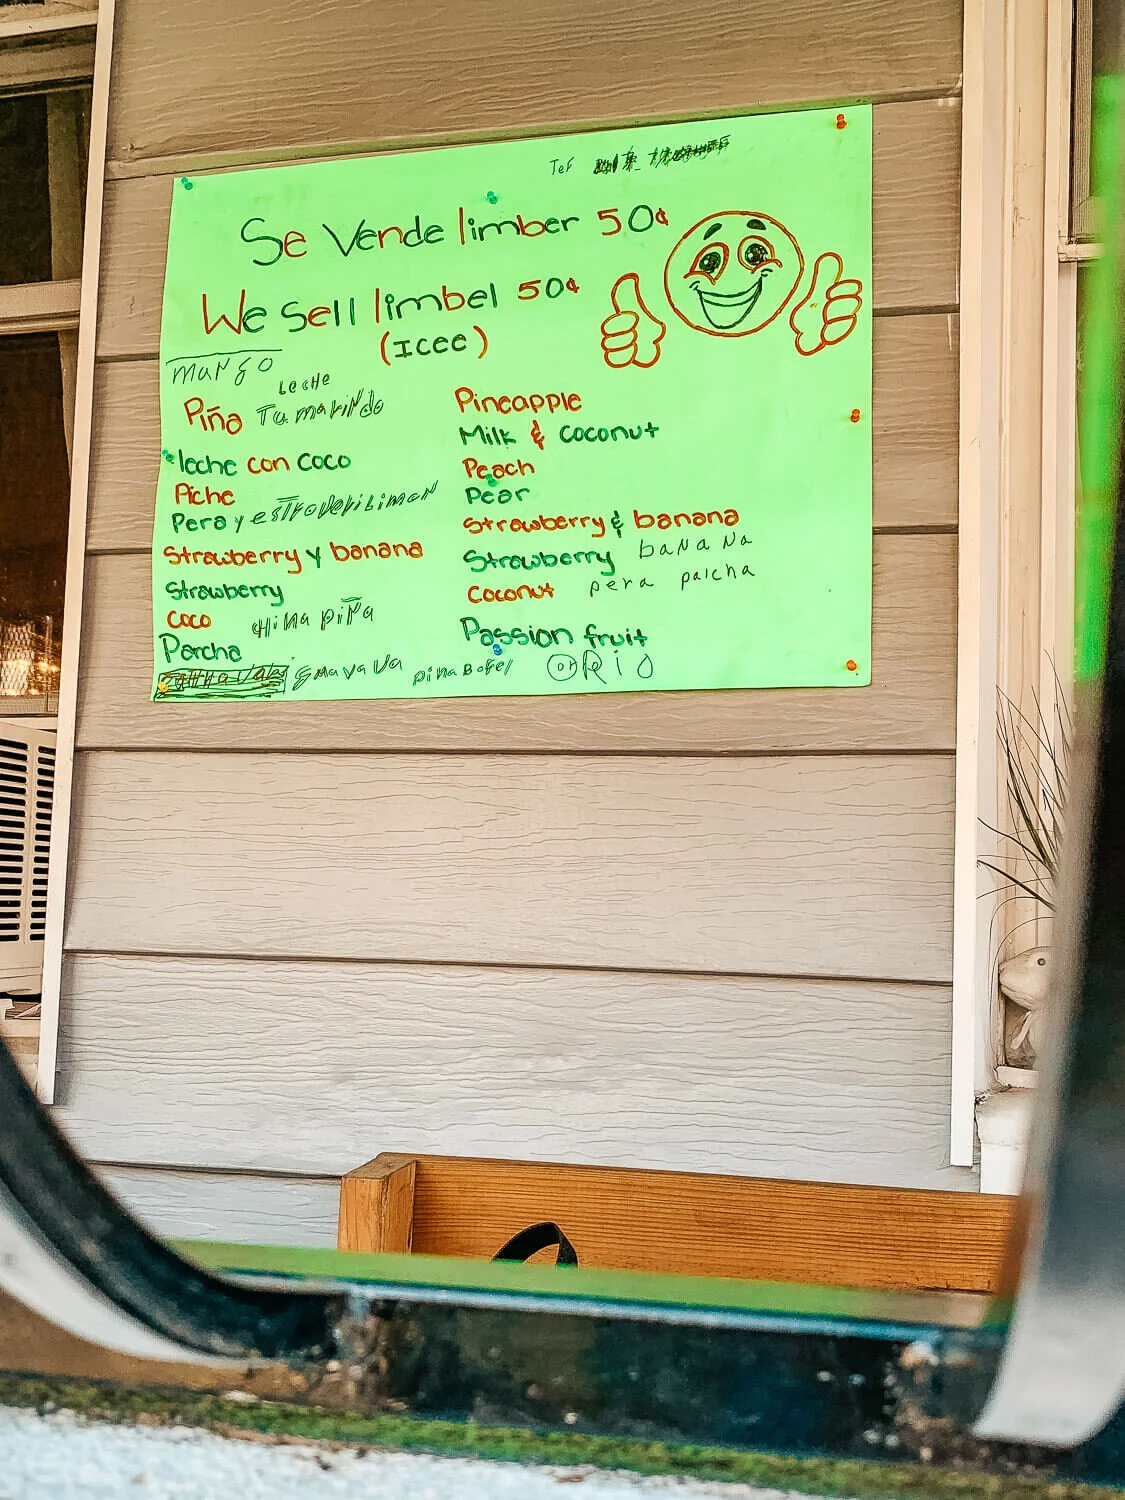 Tel
Se Vende limber 50¢
We Sell limbel 50¢
(Icee)
mango
Leche
Piña Tamarindo
leche con coco
Piche
Pera y
Strawberry y banana
Strawberry
Coco China piña
Parcha
Guayava
Pineapple
Milk & coconut
Peach
Pear
Strawberry & banana
Strawberry banana
Coconut pera palcha
Passion fruit